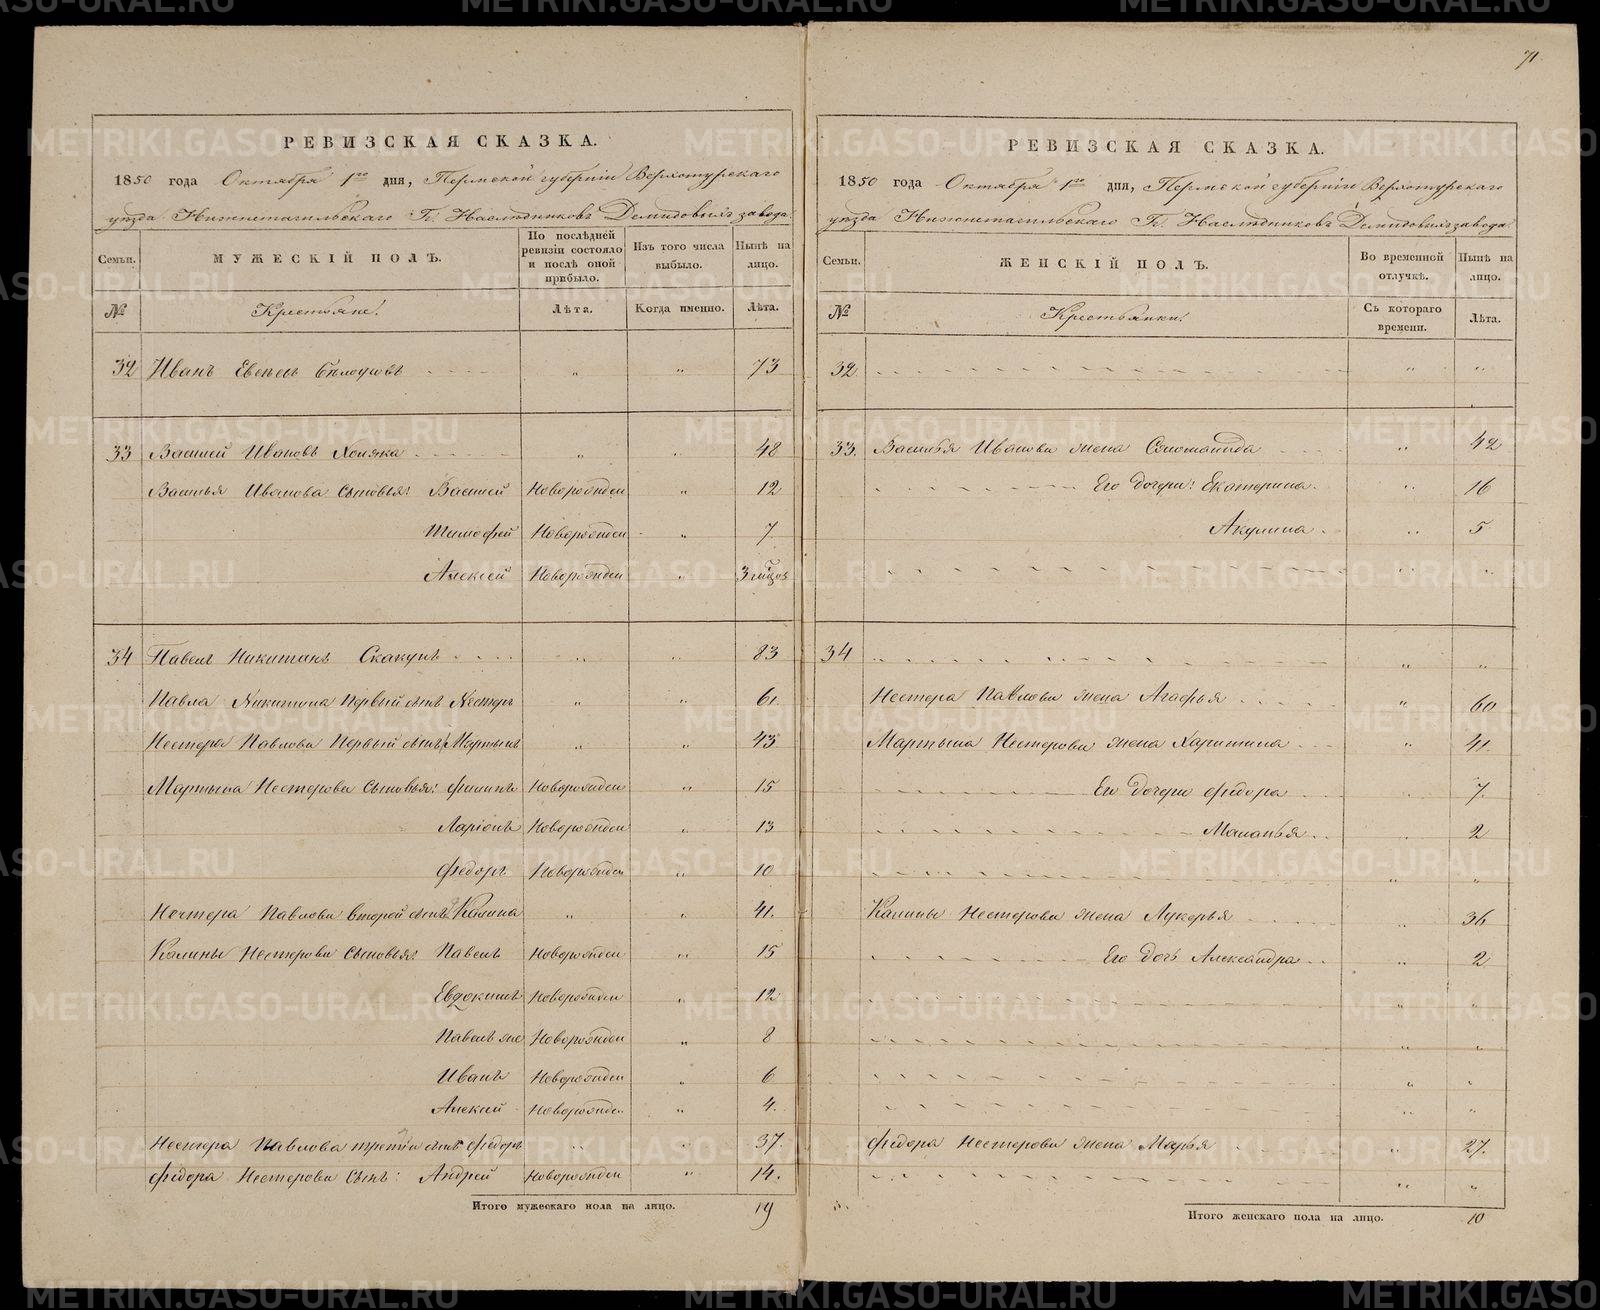 71.
РЕВИЗСКАЯ СКАЗКА.
1850 года Октября 1го дня, Пермской губерніи Верхотурскаго
уѣзда Нижнетагильскаго Гг. Наслѣдниковъ Демидовыхъ завода.
Семьи. МУЖЕСКІЙ ПОЛЪ. По послѣдней ревизіи состояло и послѣ оной прибыло. Изъ того числа выбыло. Нынѣ на лицо.
№ Крестьяне: Лѣта. Когда именно. Лѣта.
32 Иванъ " " 73
33 Василей Ивановъ " " 48
Василья Иванова сыновья: Василей Новорожден " 12
Тимофей Новорожден " 7
Алексей Новорожден " 3 мцов
34 Павелъ Никитинъ Скакунъ " " 83
Павла Никитина первый сынъ Нестеръ " " 61
Нестера Павлова первый сынъ Мартынъ " " 43
Мартына Нестерова сыновья: Филипъ Новорожден " 15
Ларіонъ Новорожден " 13
Федоръ Новорожден " 10
Нестера Павлова второй сынъ Калина " " 41.
Калины Нестерова сыновья: Павелъ Новорожден " 15
Евдокимъ Новорожден " 12
Павелъ же Новорожден " 8
Иванъ Новорожден " 6
Алексий Новорожден " 4.
Нестера Павлова третій сынъ Федоръ " " 37.
Федора Нестерова сынъ: Андрей Новорожден " 14.
Итого мужескаго пола на лицо. 19
РЕВИЗСКАЯ СКАЗКА.
1850 года Октября 1го дня, Пермской губерніи Верхотурскаго
уѣзда Нижнетагильскаго Гг. Наслѣдниковъ Демидовыхъ завода.
Семьи. ЖЕНСКІЙ ПОЛЪ. Во временной отлучкѣ. Нынѣ на лицо.
№ Крестьянки: Съ котораго времени. Лѣта.
32. " "
33. Василья Иванова жена Соломанида " 42
Его дочери: Екатерина " 16
Акулина " 5
" "
34 " "
Нестера Павлова жена Агафья " 60
Мартына Нестерова жена Харитина " 41.
Его дочери Федора " 7.
Маланья " 2
" "
Калины Нестерова жена Лукерья " 36
Его дочь Александра " 2
" "
" "
" "
" "
Федора Нестерова жена Марья " 27.
" "
Итого женскаго пола на лицо. 10
METRIKI.GASO-URAL.RU